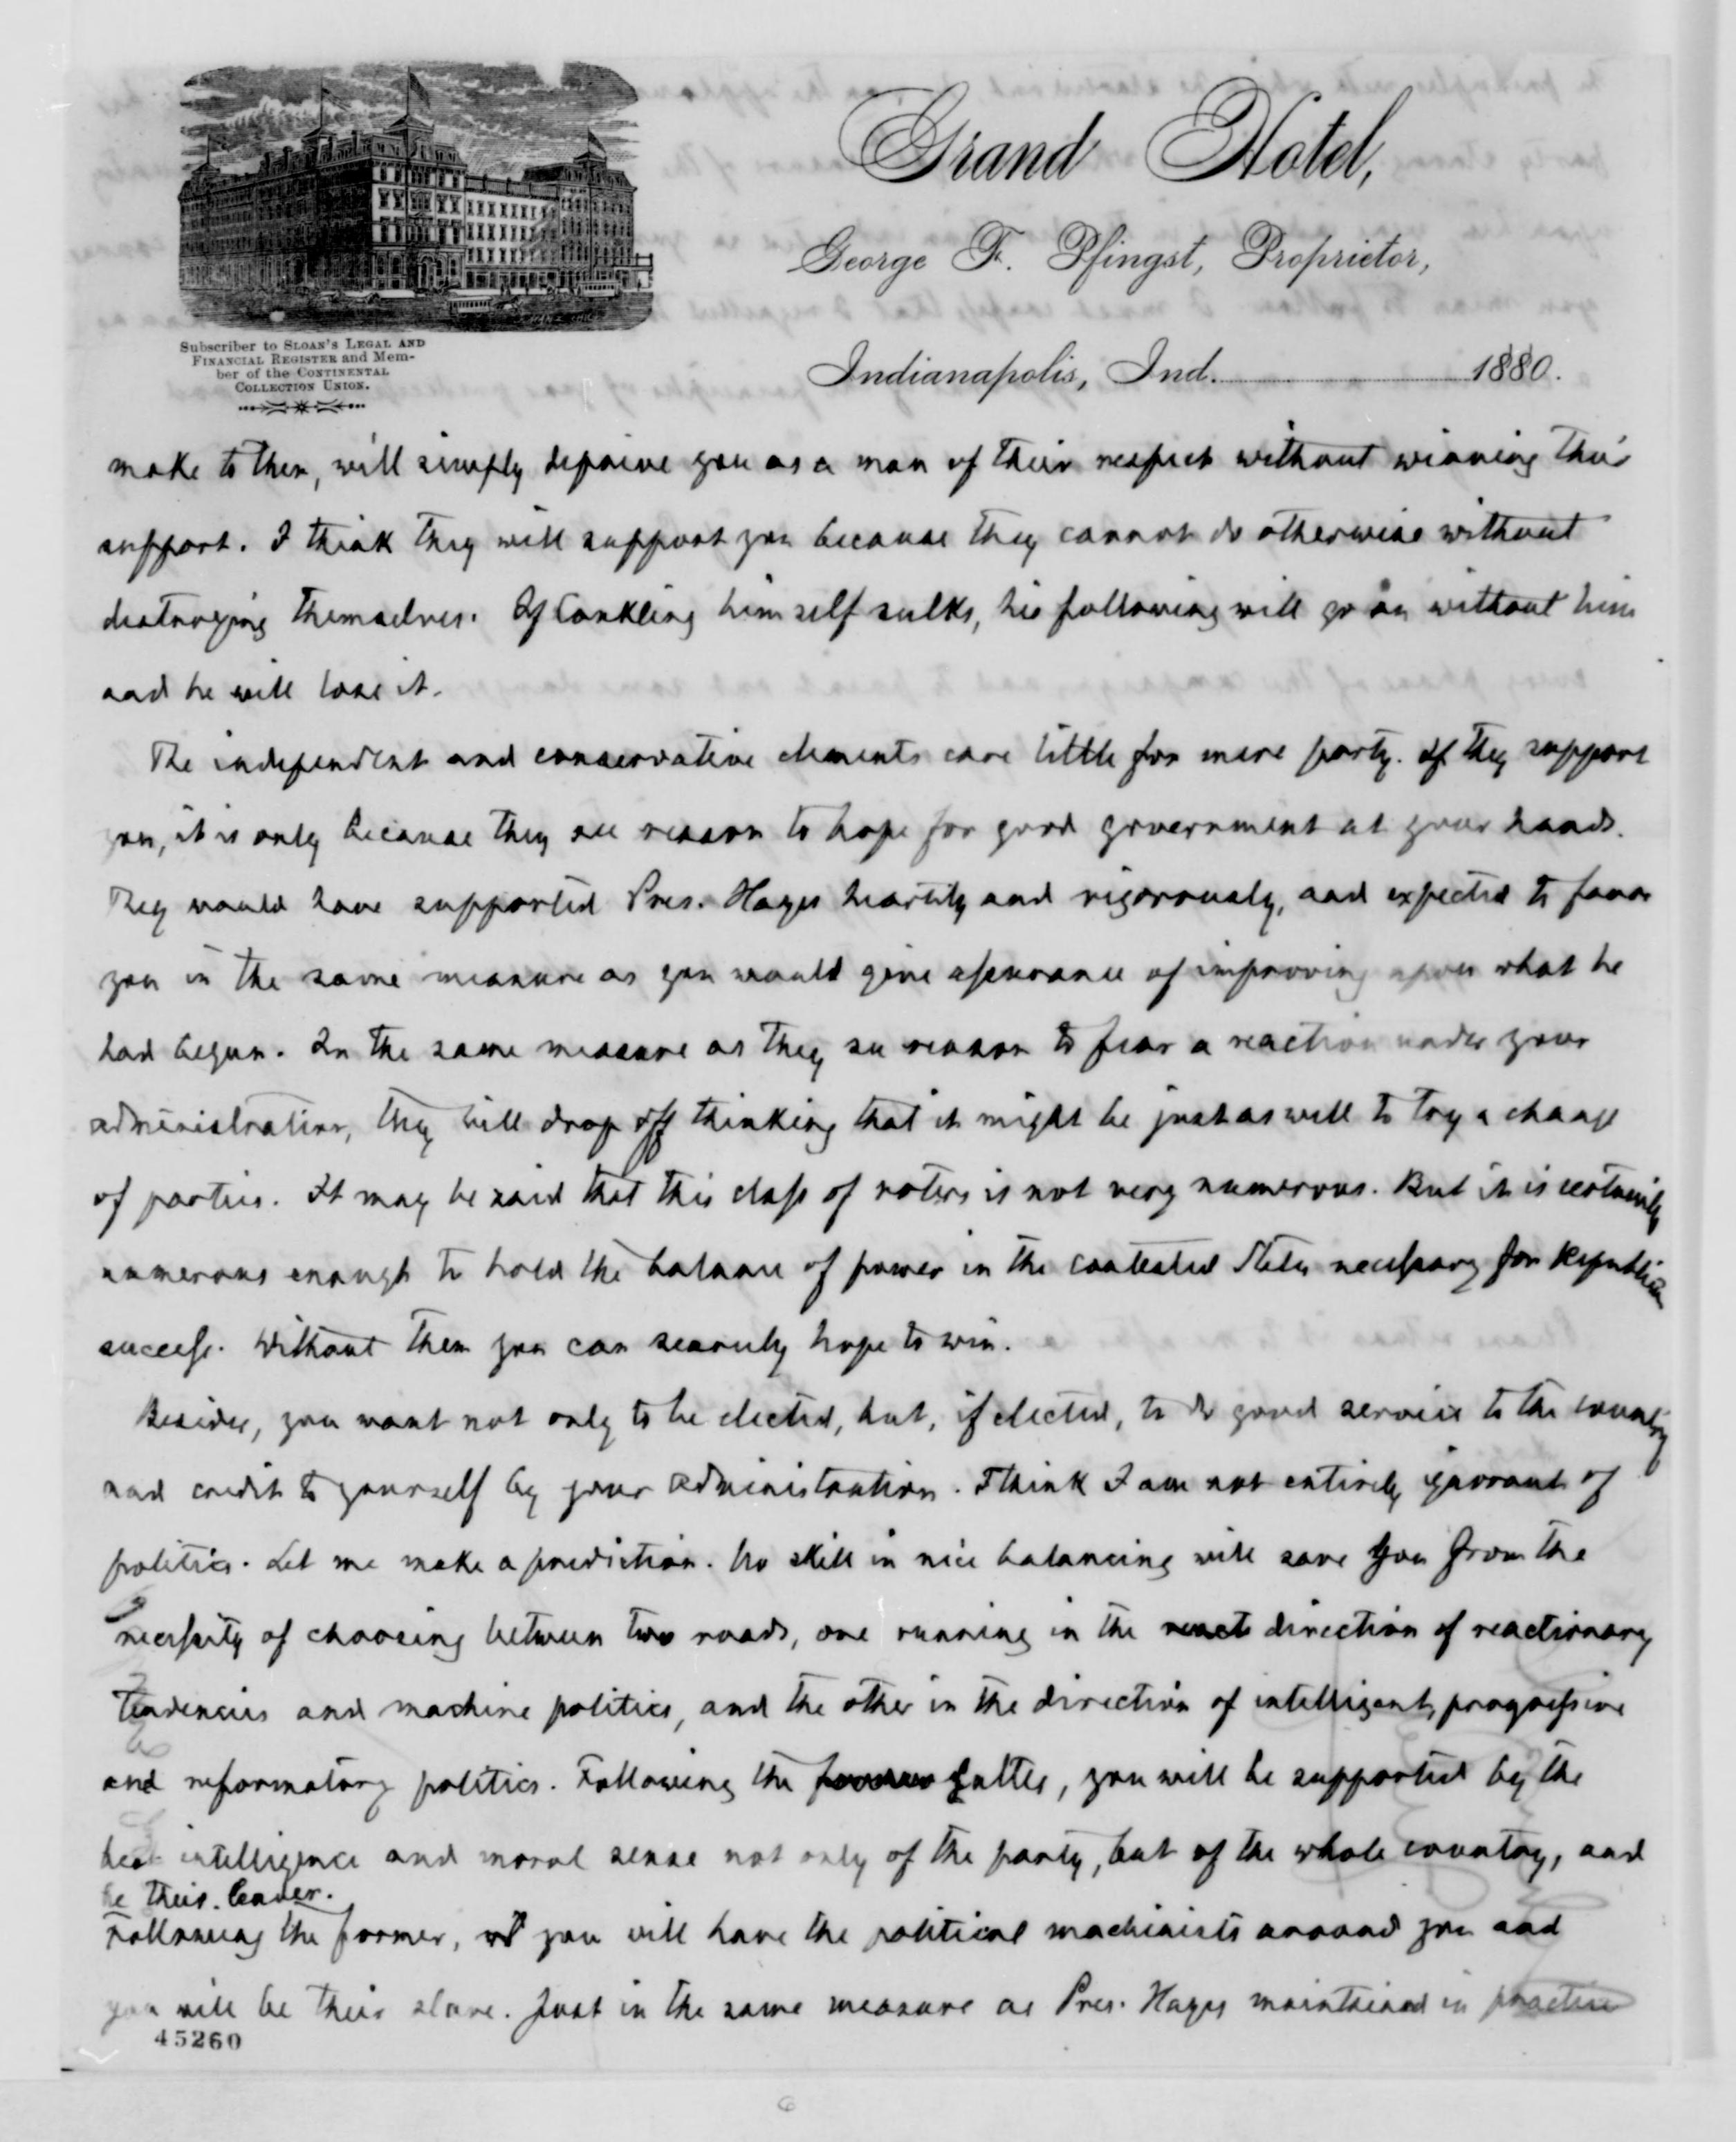 Grand Hotel,
George F. Pfingst, Proprietor,
Indianapolis, Ind. 1880.
Subscriber to SLOAN'S LEGAL AND
FINANCIAL REGISTER and Mem-
ber of the CONTINENTAL
COLLECTION UNION.
make to them, will simply deprive you as a man of their respect without winning their
support. I think they will support you because they cannot do otherwise without
destroying themselves. If Conkling himself sulks, his following will go on without him
and he will lose it.
The independent and conservative elements care little for mere party. If they support
you, it is only because they see reason to hope for good government at your hands.
They would have supported Pres. Hayes heartily and vigorously, and expected to favor
you in the same measure as you would give assurance of improving upon what he
had begun. In the same measure as they see reason to fear a reaction under your
administration, they will drop off thinking that it might be just as well to try a change
of parties. It may be said that this class of voters is not very numerous. But it is certainly
numerous enough to hold the balance of power in the contested States necessary for Republican
success. Without them you can scarcely hope to win.
Besides, you want not only to be elected, but, if elected, to do good service to the country
and credit to yourself by your administration. I think I am not entirely ignorant of
politics. Let me make a prediction. No skill in nice balancing will save you from the
necessity of choosing between two roads, one running in the react direction of reactionary
tendencies and machine politics, and the other in the direction of intelligent, progressive
and reformatory politics. Following the former latter, you will be supported by the
best intelligence and moral sense not only of the party, but of the whole country, and
be their leader.
Following the former, you will have the political machinists around you and
you will be their slave. Just in the same measure as Pres. Hayes maintained in practice
45260